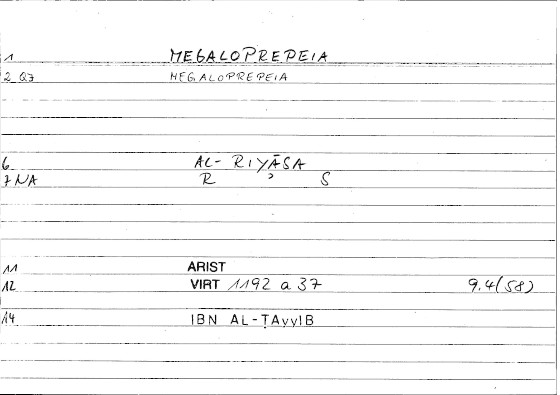 1 MEGALOPREPEIA
2 Q7 MEGALOPREPEIA
6 AL-RIYĀSA
7 NA R ʾ S
11 ARIST
12 VIRT 1192 a 37 9.4(58)
14 IBN AL-ṬAyyIB